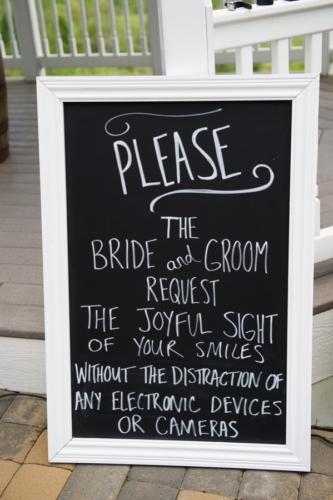 PLEASE
THE
BRIDE and GROOM
REQUEST
THE JOYFUL SIGHT
OF YOUR SMILES
WITHOUT THE DISTRACTION OF
ANY ELECTRONIC DEVICES
OR CAMERAS